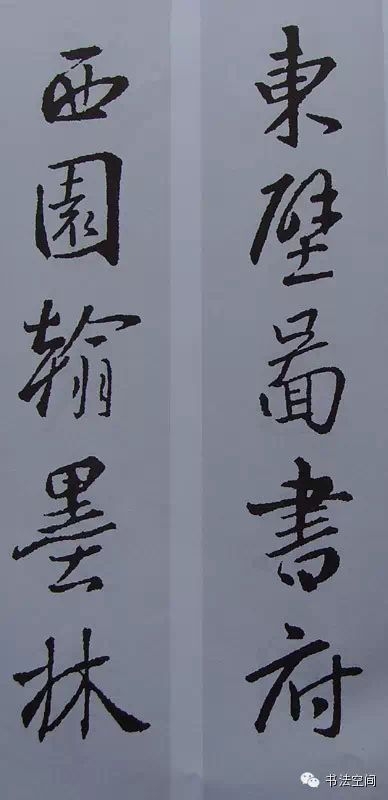 東壁啚書府
西園翰墨林
书法空间